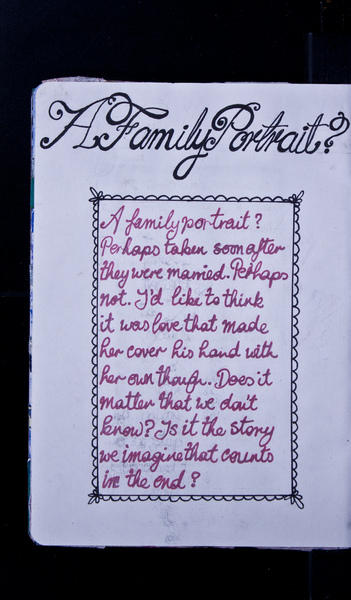 A Family Portrait?
A family portrait?
Perhaps taken soon after
they were married. Perhaps
not. I'd like to think
it was love that made
her cover his hand with
her own though. Does it
matter that we don't
know? Is it the story
we imagine that counts
in the end?